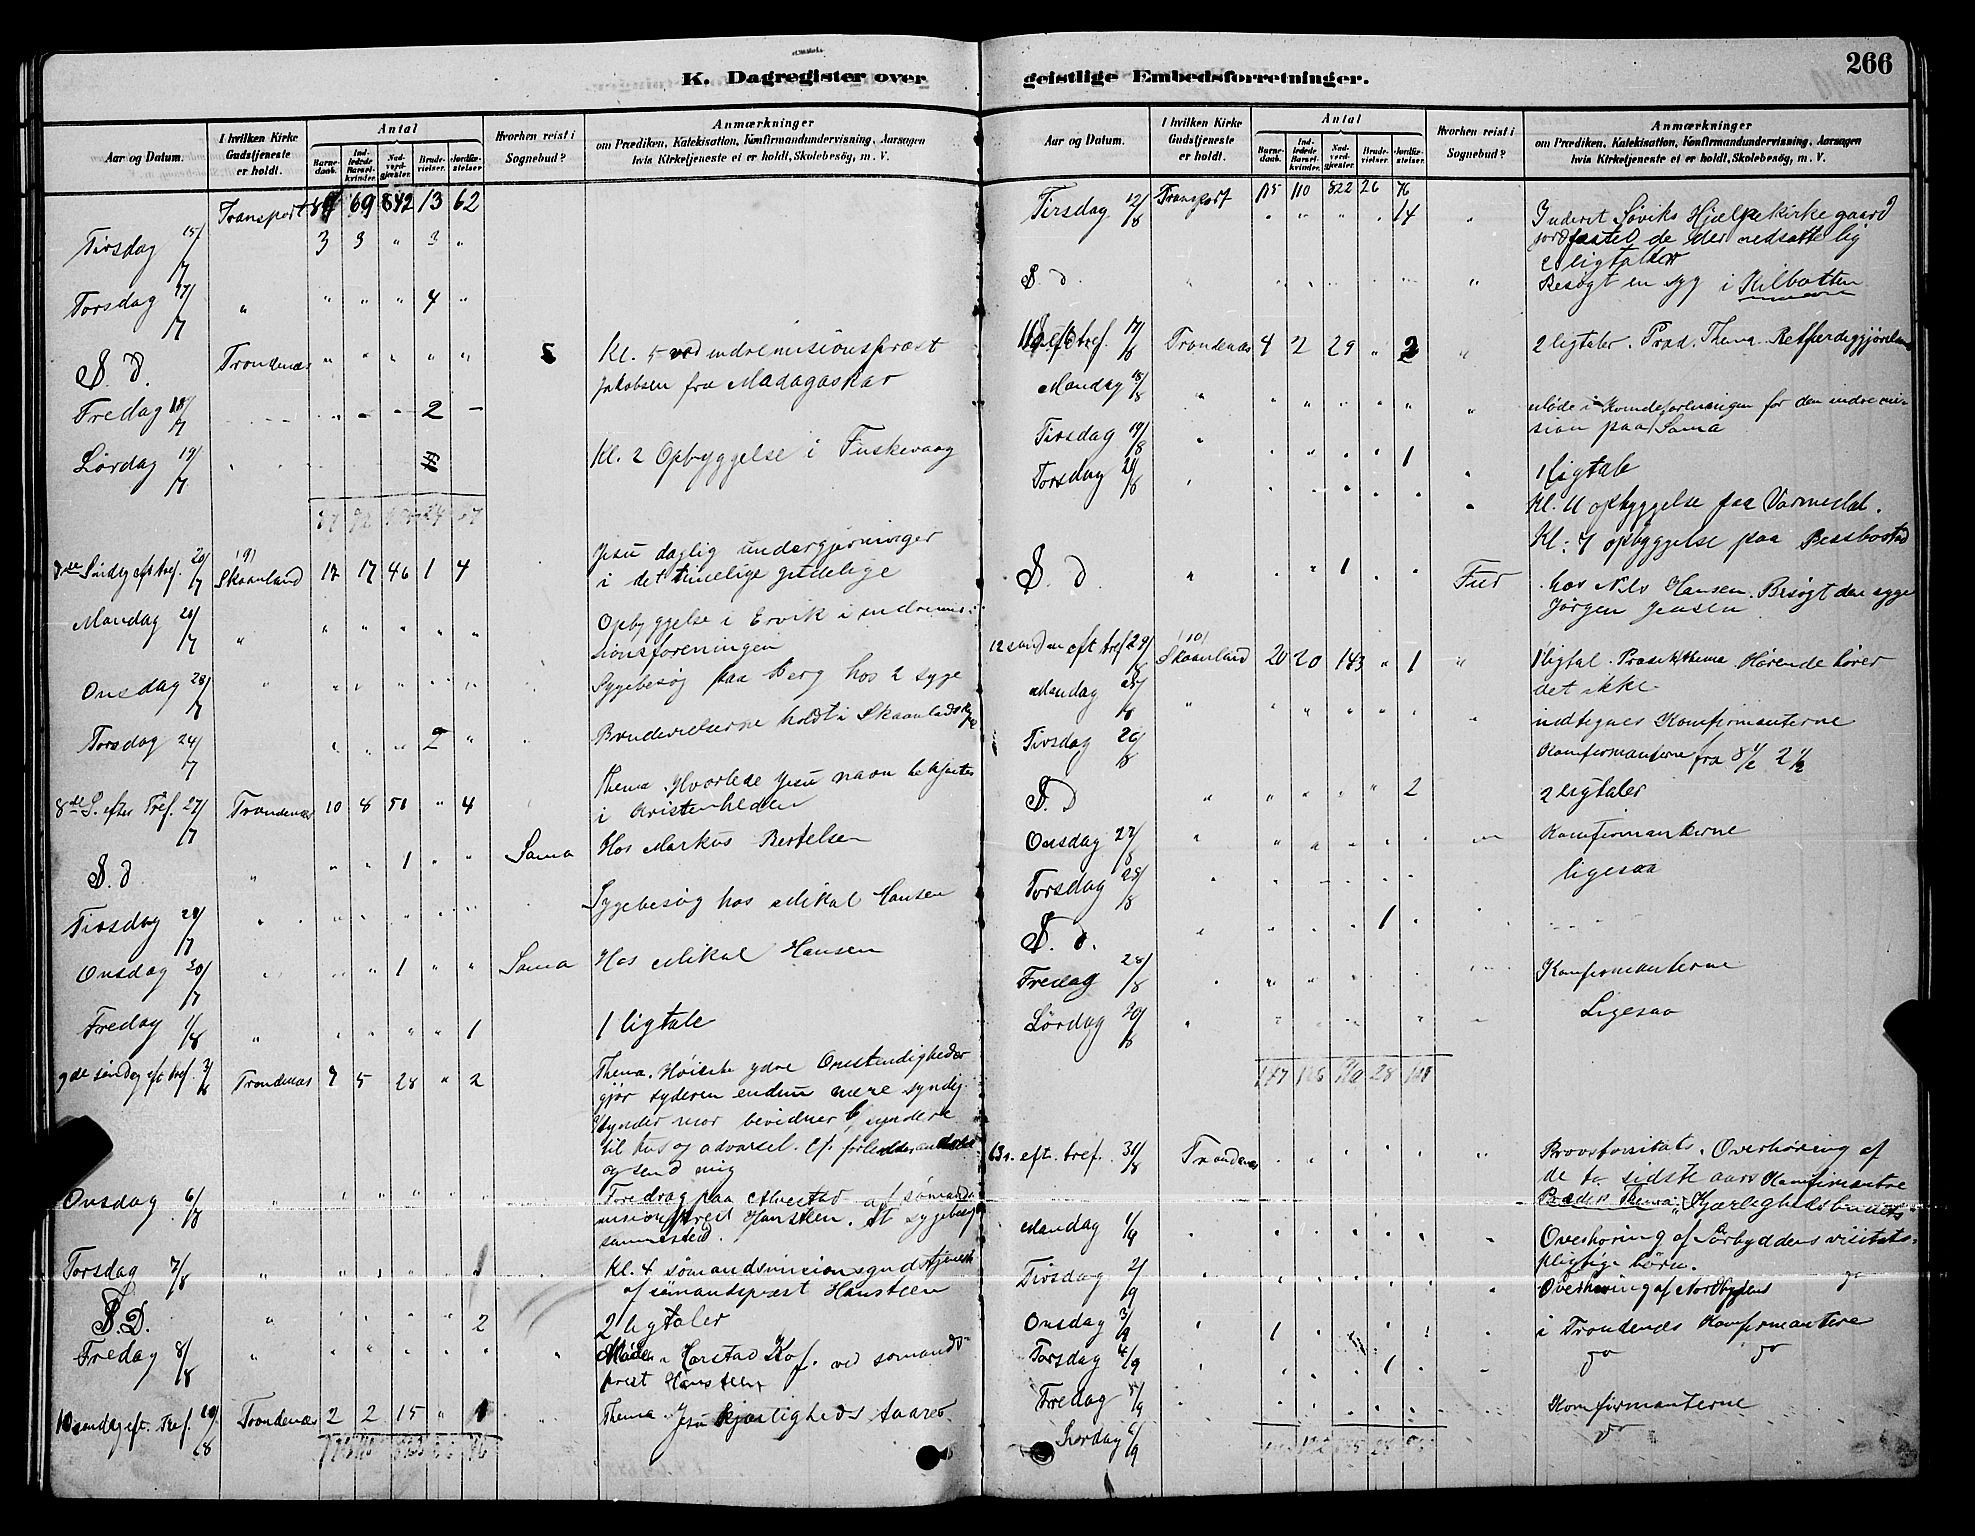 K. Dagregister over geistlige Embedsforretninger.
266
Aar og Datum.
I hvilken Kirke Gudstjeneste er holdt.
Antal
Barnedaab.
Indledede Barselkvinder.
Nadverdgjester.
Brudevielser.
Jordfæstelser
Hvorhen reist i Sognebud?
Anmærkninger
om Prædiken, Katekisation, Konfirmandundervisning, Aarsagen
hvis Kirketjeneste ei er holdt, Skolebesög, m. V.
Transport 69 842 13 62
Tirsdag 15/7 3 3 " 3 "
Torsdag 17/7 " " " " 4 "
S. D. Trondenæs " " " " " Kl. 5 ved indremisionspræst
Jakobsen fra Madagaskar
Fredag 18/7 2
Lørdag 19/7 Kl. 2 Opbyggelse i Fuskevaag
7de Søndag eft tref. 20/7 Skaanland 17 17 46 1 4 Jesu daglig undergjerninger
i det timelige
Mandag 21/7 " Opbyggelse i Ervik i indremis-
sionsforeningen
Onsdag 23/7 Sygebesøg paa Berg hos 2 syge
Torsdag 24/7 2 Brudevielserne holdt i Skaanland
8de S. efter Tref. 27/7 Trondenæs 10 8 51 " 4 Thema. Hvorlede Jesu navn bekjentes
i kristenheden
S. D. " 1 Sama Hos Markus Bertelsen
Tirsdag 29/7 Sygebesøg hos Mikal Hansen
Onsdag 30/7 1 Sama Hos Mikal Hansen
Fredag 1/8 " 1 1 ligtale
9de søndag eft tref. 3/8 Trondenæs 7 5 28 " 2 Thema. ydre Omstendigheder
gjør synderen endnu mere syndig
og send mig
Onsdag 6/8 Foredrag paa af sømands
misionsprest Hansteen. Et sygebesøg
sammested.
Torsdag 7/8 Kl. 4 sømandsmisionsgudstjeneste
af sømandsprest Hansteen
S. D. 2 2 ligtaler
Fredag 8/8 Møde i Harstad ved sømands-
prest Hansteen
10 søndag eft. Tref. 10/8 Trondenæs 2 2 15 " 1 Thema. Jesu kjærligheds taarer
Aar og Datum.
I hvilken Kirke Gudstjeneste er holdt.
Antal
Barnedaab.
Indledede Barselkvinder.
Nadverdgjester.
Brudevielser.
Jordfæstelser.
Hvorhen reist i Sognebud?
Anmærkninger
om Prædiken, Katekisation, Konfirmandundervisning, Aarsagen
hvis Kirketjeneste ei er holdt, Skolebesög, m. V.
Transport 115 110 822 26 76
Tirsdag 12/8 14 Inderet Søviks Hjælpekirkegaard
jordfæstet de der nedsatte lig
2 ligtaler
S. D. Besøgt en syg i Kilbotten
11 s. eft tref. 17/8 Trondenæs 4 2 29 " 2 2 ligtaler. Præd. Thema. Retferdiggjørelse
Mandag 18/8 møde i Kvindeforeningen for den indre mi-
sion paa Sama
Tirsdag 19/8 1 1 ligtale
Torsdag 21/8 Kl. 11 opbyggelse paa Varmedal.
Kl. 7 opbyggelse paa Bessbostad
S. D " 1 Fur hos Nils Hansen. Besøgt den syge
Jørgen Jensen
12 sønd en eft tref 24/8 Skaanland 20 20 143 " 1 1 ligtal. Thema Hørende hører
det ikke
Mandag 25/8 indtegnes Konfirmanterne
Tirsdag 26/8 Konfirmanterne fra 8 1/2 2 1/2
S. D 2 2 ligtaler
Onsdag 27/8 Konfirmanterne
Torsdag 28/8 ligesaa
S. D. 1
Fredag 28/8 Konfirmanterne
Lørdag 30/8 Ligesaa
147 28
13 s. eft. tref. 31/8 Trondenæs Provstvisitats. Overhøring af
de to sidste aars Konfirmantere
Præd. Thema: Kjærlighedsbudets
Mandag 1/9 Overhøring af Sørbygdens visitats-
pligtige børn.
Tirsdag 2/9 Overhøring af Nordbygdens do
Onsdag 3/9 1 i Trondenæs Konfirmantere
Torsdag 4/9 1 do do
Fredag 5/9 Konfirmanterne
Lørdag 6/9 do